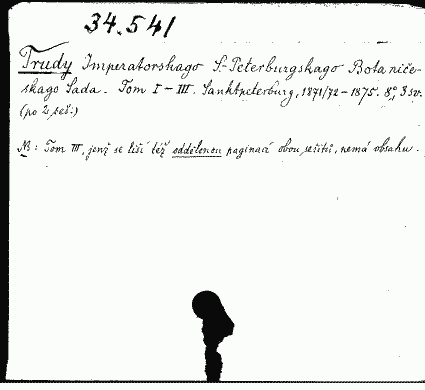 34.541
Trudy Imperatorskago S.-Peterburgskago Botaniče-
skago Sada. Tom I - III. Sanktpeterburg, 1871/72 - 1875. 8°, 3 sv.
(po 2 seš.)
NB: Tom III, jenž se liší též oddělenou paginací obou sešitů, nemá obsahu.